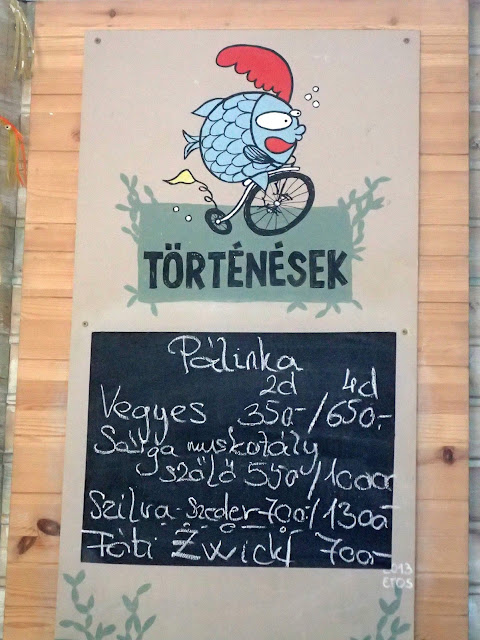 TÖRTÉNÉSEK
Pálinka
2d 4d
Vegyes 350.-/650.-
Sárga muskotály
szőlő 550/1000.-
Szilva-Szeder-700.-/1300.-
Táti Zwickl 700.-
2013
ETOS